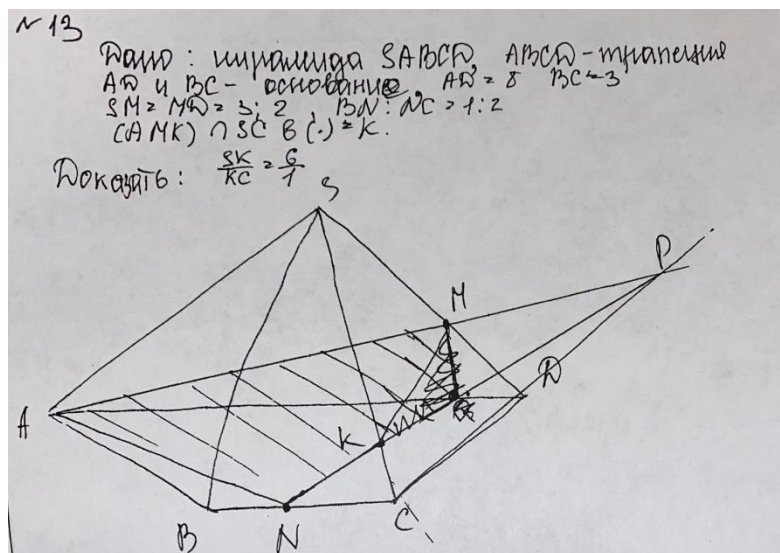 № 13
Дано: пирамида SABCD, ABCD - трапеция
AD и BC - основание, AD = 8 BC = 3
SM = MD = 3:2, BN : NC = 1:2
(AMK) ∩ SC в (·) = K.
Доказать: SK/KC = 6/1
S
P
M
D
A
K
B
N
C